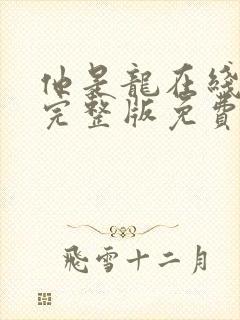 他是龍在綫
完整版免費
飛雪十二月